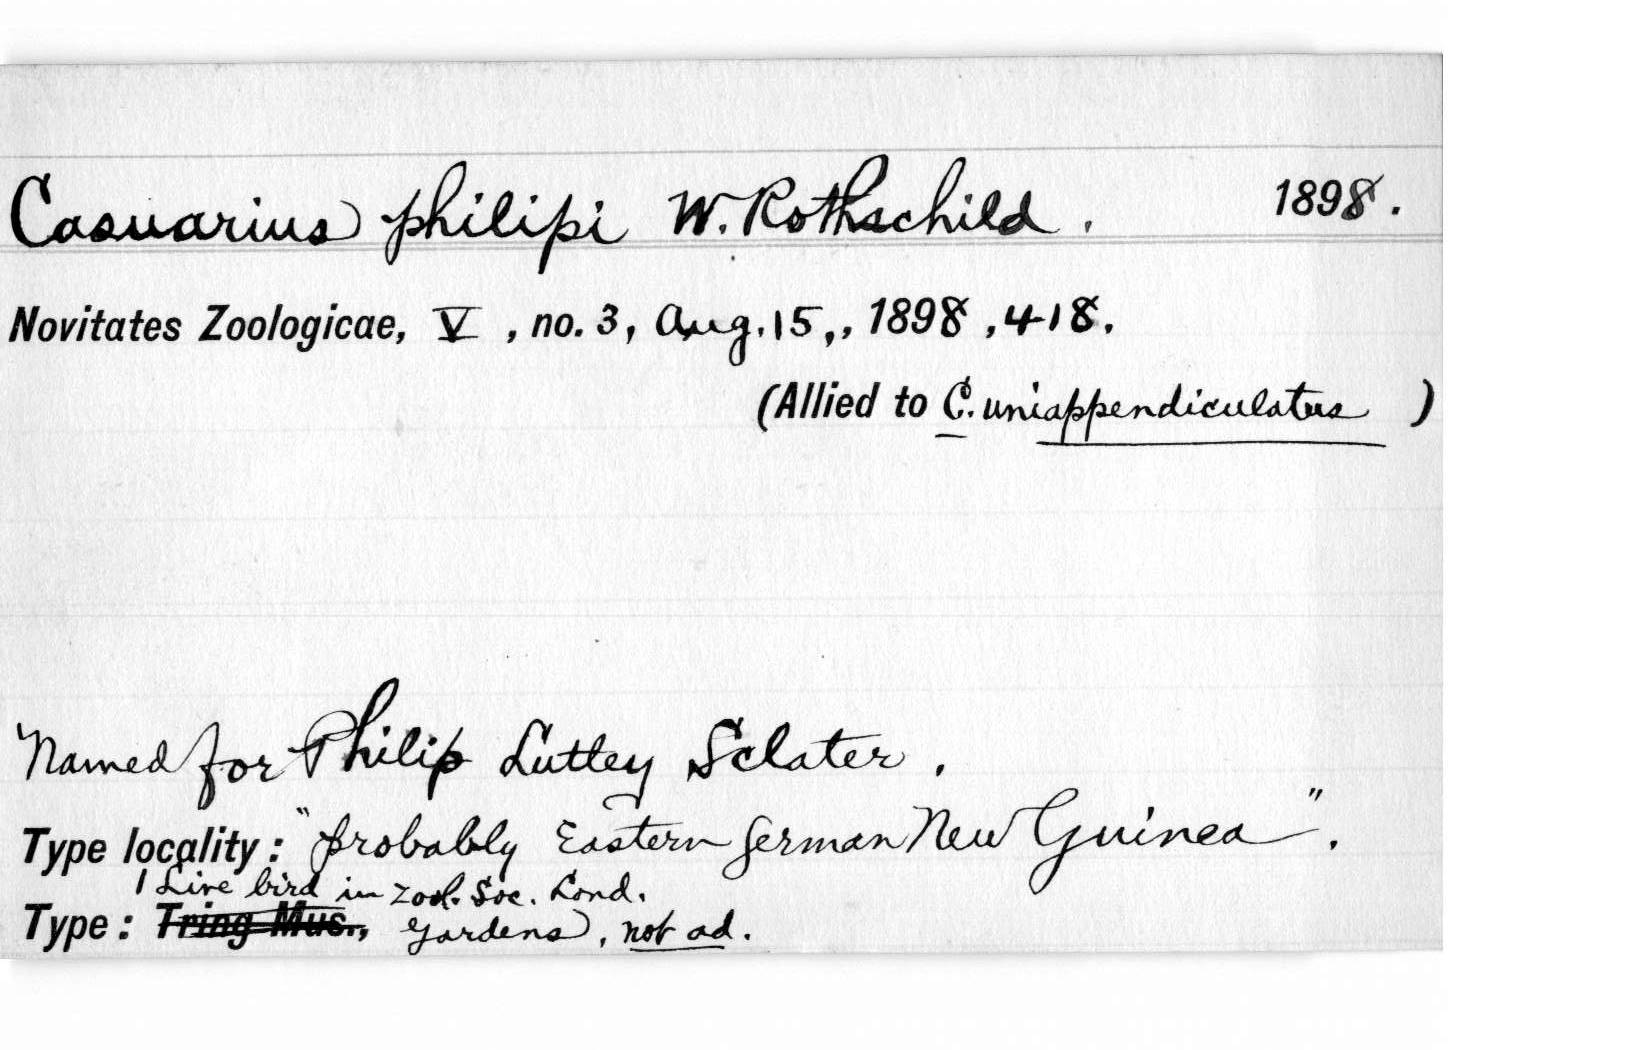 Casuarius philipi W. Rothschild. 1898.
Novitates Zoologicae, V, no. 3, Aug. 15,, 1898, 418.
(Allied to C. uniappendiculatus )
Named for Philip Lutley Sclater.
Type locality: "probably Eastern German New Guinea".
1 Live bird in Zool. Soc. Lond.
Type: Tring Mus., Gardens, not ad.